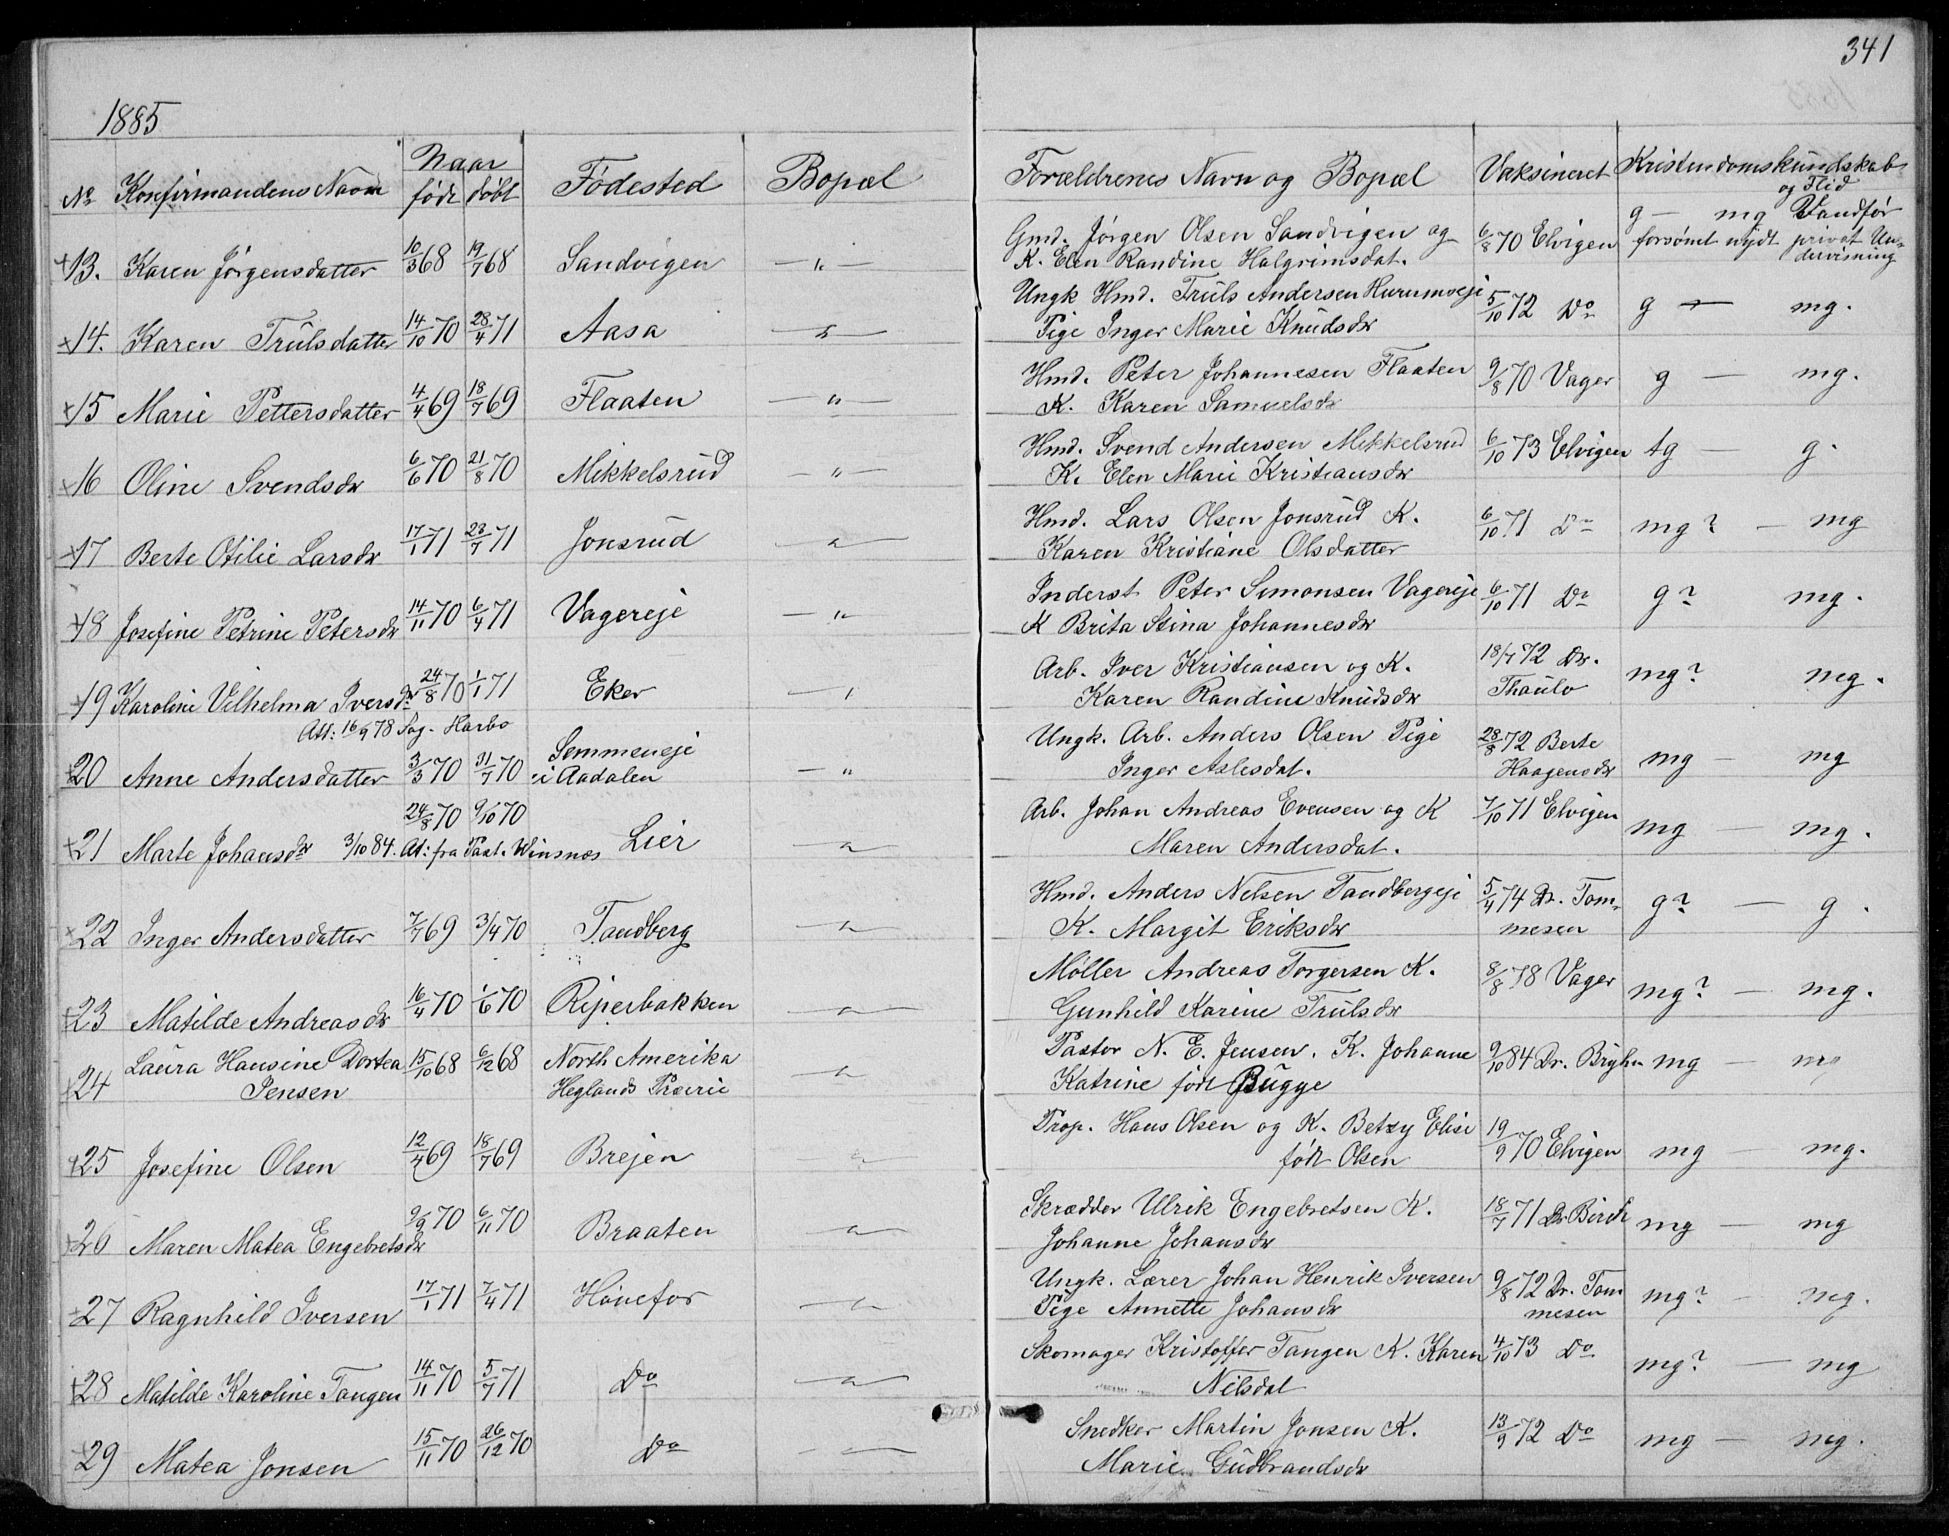 341
1885
No Konfirmandens Navn Naar født døbt Fødested Bopæl Forældrenes Navn og Bopæl Vaksineret Kristendomskundskab og Flid
13. Karen Jørgensdatter 10/3 68 19/7 68 Sandvigen —"— Gmd. Jørgen Olsen Sandvigen og 6/8 70 Elvigen g — mg Vandfør
K. Elen Randine Halgrimsdat. forsømt nydt privat Undervisning
14. Karen Trulsdatter 14/10 70 28/4 71 Aasa —"— Ungk Hmd. Truls Andersen Hurumseje 5/10 72 Do g — mg.
Pige Inger Marie Knudsdr
15 Marie Pettersdatter 4/4 69 18/7 69 Flaaten —"— Hmd. Peter Johannesen Flaaten 9/8 70 Vager g — mg.
K. Karen Samuelsdr
16 Oline Svendsdr 6/6 70 21/8 70 Mikkelsrud —"— Hmd. Svend Andersen Mikkelsrud 6/10 73 Elvigen tg — g.
K. Elen Marie Kristiansdr
17 Berte Otilie Larsdr 17/1 71 23/7 71 Jonsrud —"— Hmd. Lars Olsen Jonsrud K. 6/10 71 Do mg? — mg
Karen Kristiane Olsdatter
18 Josefine Petrine Petersdr 14/11 70 6/4 71 Vagereje —"— Inderst Peter Simonsen Vagereje 6/10 71 Do g? mg.
K Brita Stina Johannesdr
19 Karoline Vilhelma Iversdr 24/8 70 1/1 71 Eker —"— Arb. Iver Kristiansen og K. 18/7 72 Dr. mg? mg.
Att: 16/9 78 Sog. Harbo Karen Randine Knudsdr Thaulo
20 Anne Andersdatter 3/3 70 31/7 70 Semmeneje —"— Ungk. Arb. Anders Olsen Pige 28/8 72 Berte mg — mg
i Aadalen Inger Aslesdat. Haagensdr
21 Marte Johansdr 24/8 70 9/10 70 Lier —"— Arb. Johan Andreas Evensen og K 7/10 71 Elvigen mg — mg.
3/10 84. At: fra Past. Winsnes Maren Andersdat.
22 Inger Andersdatter 7/7 69 3/4 70 Tandberg —"— Hmd. Anders Nelsen Tandbergeje 5/4 74 Dr. Tom- g? — g.
K. Margit Eriksdr mesen
23 Matilde Andreasdr 16/4 70 1/6 70 Ripersbakken —"— Møller Andreas Torgersen K. 8/8 78 Vager mg? — mg.
Gunhild Karine Trulsdr
24 Laura Hansine Dortea 15/10 68 6/12 68 North Amerika —"— Pastor N. E. Jensen. K. Johanne 9/10 84 Dr. Bryhn mg — mg
Jensen Heglands Prærie Katrine født Bugge
25 Josefine Olsen 12/4 69 18/7 69 Brejen —"— Prop. Hans Olsen og K. Betzy Elise 19/9 70 Elvigen mg — mg.
født Olsen
26 Maren Matea Engebretsdr 9/9 70 6/11 70 Braaten —"— Skrædder Ulrik Engebretsen K. 18/7 71 Dr Birch mg — mg
Johanne Johansdr
27 Ragnhild Iversen 17/1 71 7/4 71 Hønefos —"— Ungk. Lærer Johan Henrik Iversen 9/8 72 Dr. Tom mg? — mg.
Pige Annette Johansdr mesen
28 Matilde Karoline Tangen 14/11 70 5/7 71 Do —"— Skomager Kristoffer Tangen K. Karen 4/10 73 Do mg? — mg
Nilsdat
29 Matea Jonsen 15/11 70 26/12 70 Do — Snedker Martin Jonsen K. 13/9 72 Do mg — mg.
Marie Gudbrandsdr